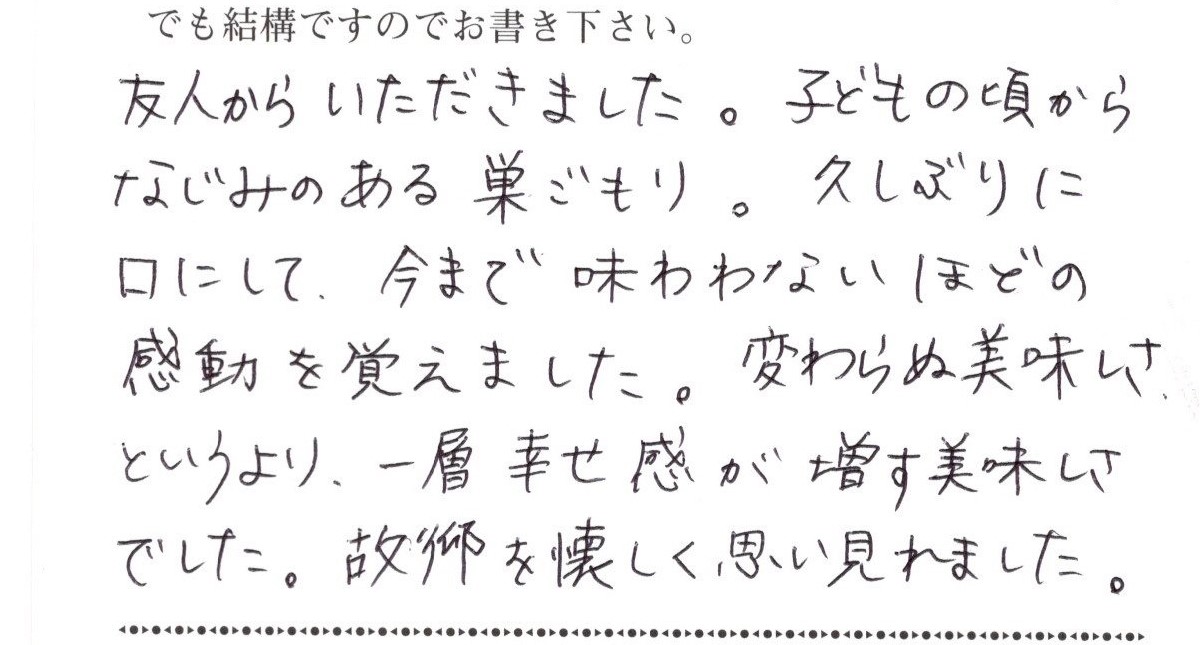 でも結構ですのでお書き下さい。
友人からいただきました。子どもの頃から
なじみのある巣ごもり。久しぶりに
口にして、今まで味わわないほどの
感動を覚えました。変わらぬ美味しさ、
というより、一層幸せ感が増す美味しさ
でした。故郷を懐しく思い見れました。